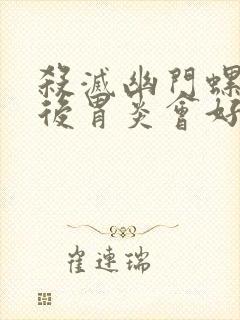 殺滅幽門螺
後胃炎會好
崔連瑞